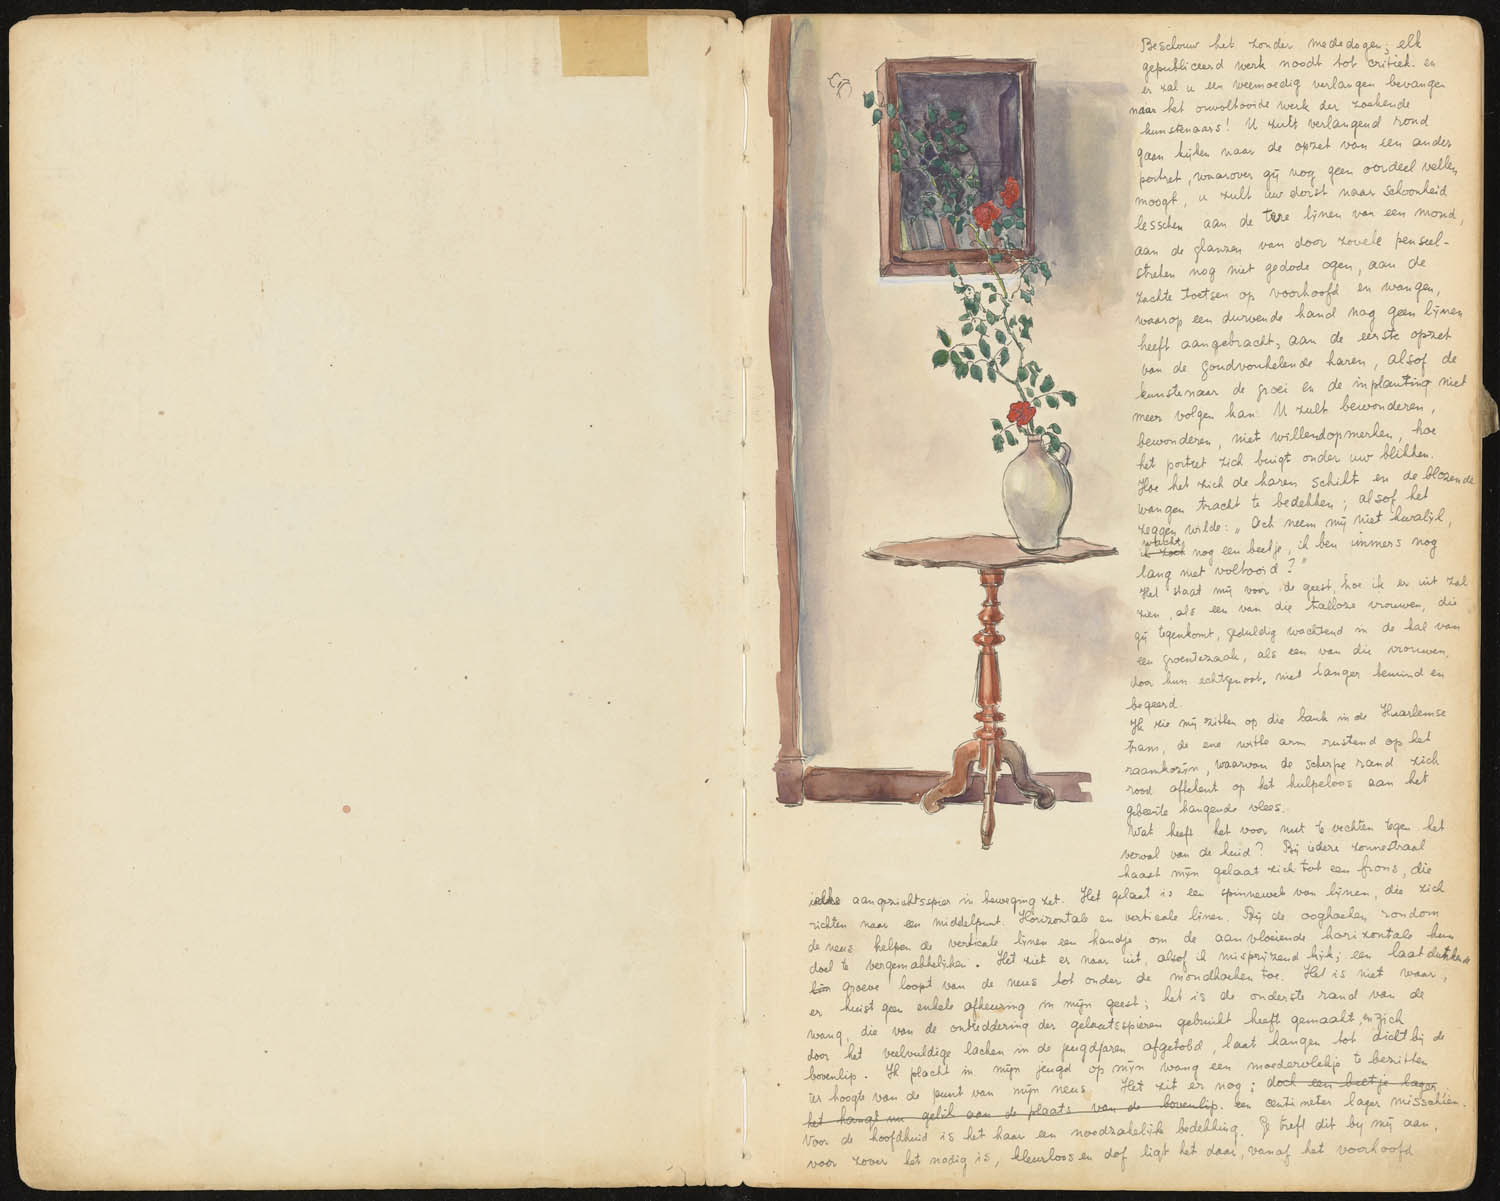 Beschouw het zonder mededogen; elk
gepubliceerd werk noodt tot critiek en
er zal u een weemoedig verlangen bevangen
naar het onvoltooide werk der zoekende
kunstenaars! U zult verlangend rond
gaan kijken naar de opzet van een ander
portret, waarover gij nog geen oordeel vellen
moogt, u zult uw dorst naar schoonheid
lesschen aan de tere lijnen van een mond,
aan de glanzen van door zovele penseel-
streken nog niet gedode ogen, aan de
zachte toetsen op voorhoofd en wangen,
waarop een durvende hand nog geen lijnen
heeft aangebracht, aan de eerste opzet
van de goudvonkelende haren, alsof de
kunstenaar de groei en de inplanting niet
meer volgen kan. U zult bewonderen,
bewonderen, niet willend opmerken, hoe
het portret zich buigt onder uw blikken.
Hoe het zich de haren schikt en de blozende
wangen tracht te bedekken; alsof het
zeggen wilde: „Ach neem mij niet kwalijk,
wacht
ik zoek nog een beetje, ik ben immers nog
lang niet voltooid?"
Het staat mij voor de geest, hoe ik er uit zal
zien, als een van die talloze vrouwen, die
gij tegenkomt, geduldig wachtend in de hal van
een groentezaak, als een van die vrouwen,
door hun echtgenoot, niet langer bemind en
begeerd.
Ik zie mij zitten op die bank in de Haarlemse
tram, de ene witte arm rustend op het
raamkozijn, waarvan de scherpe rand zich
rood aftekent op het hulpeloos aan het
gebeente hangende vlees.
Wat heeft het voor nut te vechten tegen het
verval van de huid? Bij iedere zonnestraal
haast mijn gelaat zich tot een frons, die
elke aangezichtsspier in beweging zet. Het gelaat is een spinneweb van lijnen, die zich
richten naar een middelpunt. Horizontale en verticale lijnen. Bij de ooghoeken, rondom
de neus helpen de verticale lijnen een handje om de aanvloeiende horizontale hun
doel te vergemakkelijken. Het ziet er naar uit, alsof ik misprijzend kijk; een laatdunkende
lijn groeve loopt van de neus tot onder de mondhoeken toe. Het is niet waar,
er huist geen enkele afkeuring in mijn geest; het is de onderste rand van de
wang, die van de ontreddering der gelaatsspieren gebruikt heeft gemaakt, en zich
door het veelvuldige lachen in de jeugdjaren afgetobd, laat hangen tot dicht bij de
bovenlip. Ik placht in mijn jeugd op mijn wang een moedervlekje te bezitten
ter hoogte van de punt van mijn neus. Het zit er nog; doch een beetje lager,
het hangt nu gelijk aan de plaats van de bovenlip. een centimeter lager misschien.
Voor de hoofdhuid is het haar een noodzakelijke bedekking. Je treft dit bij mij aan,
voor zover het nodig is, kleurloos en dof ligt het daar, vanaf het voorhoofd